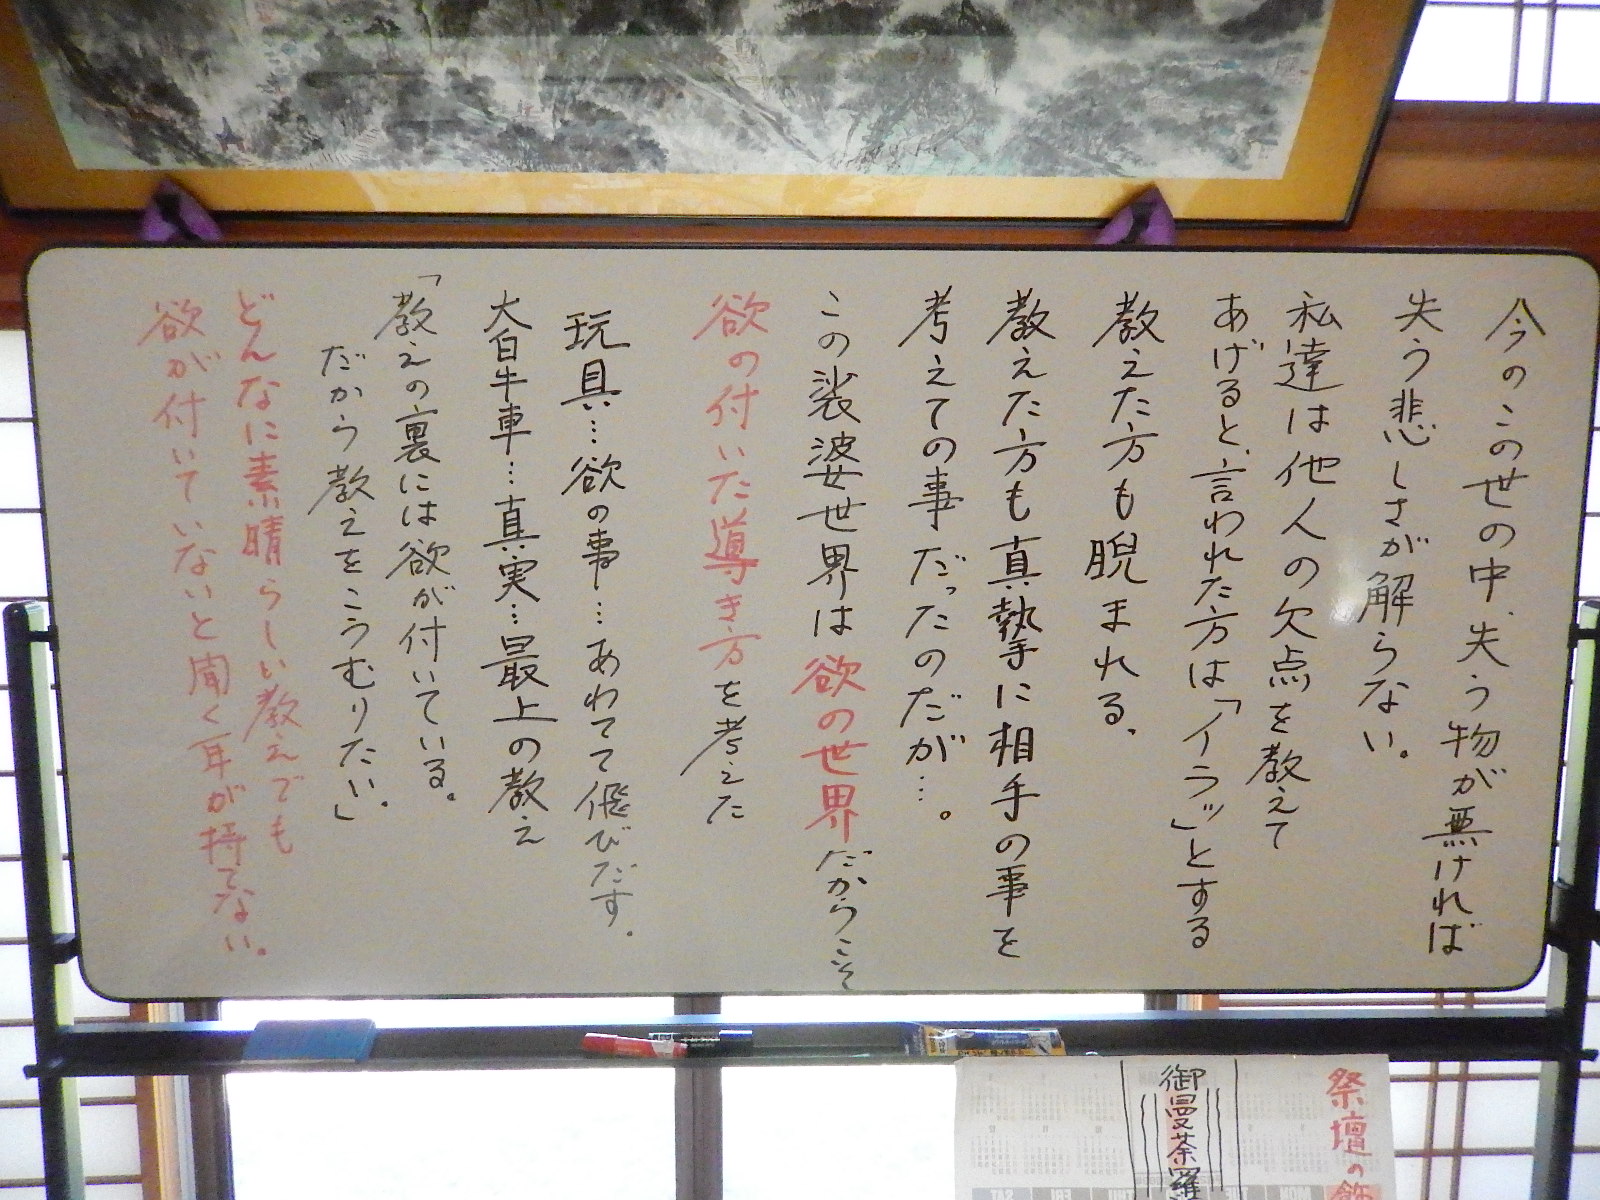 今のこの世の中、失う物が無ければ
失う悲しさが解らない。
私達は他人の欠点を教えて
あげると、言われた方は「イラッ」とする
教えた方も睨まれる、
教えた方も真摯に相手の事を
考えての事だったのだが…。
この裟婆世界は欲の世界だからこそ
欲の付いた導き方を考えた
玩具…欲の事…あわてて飛びだす。
大白牛車…真実…最上の教え
「教えの裏には欲が付いている。
だから教えをこうむりたい。」
どんなに素晴らしい教えでも
欲が付いていないと聞く耳が持てない。
祭壇の飾
御曼荼羅